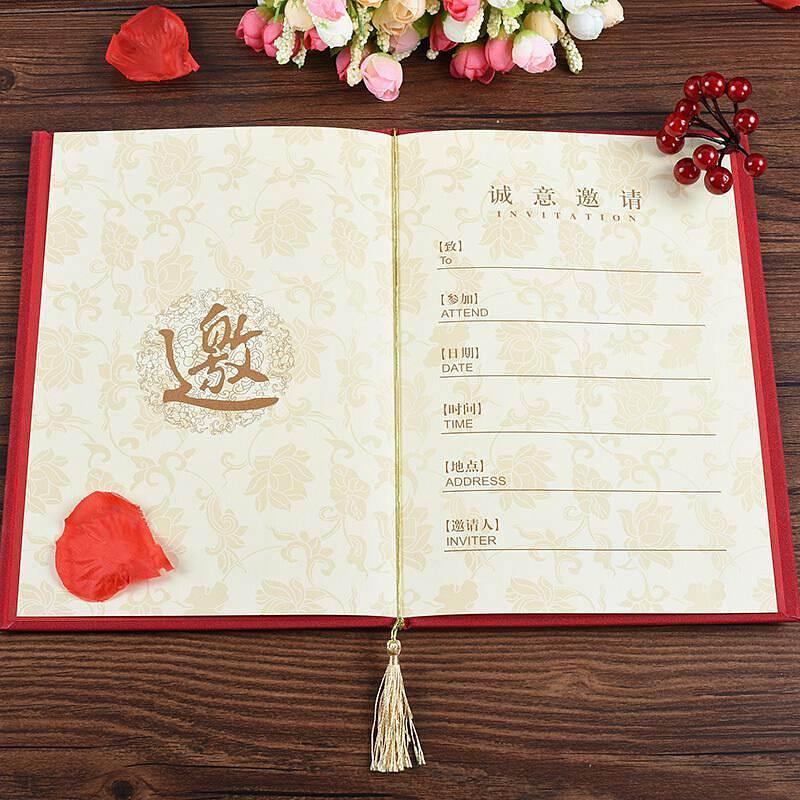 邀
诚意邀请
INVITATION
【致】
To
【参加】
ATTEND
【日期】
DATE
【时间】
TIME
【地点】
ADDRESS
【邀请人】
INVITER